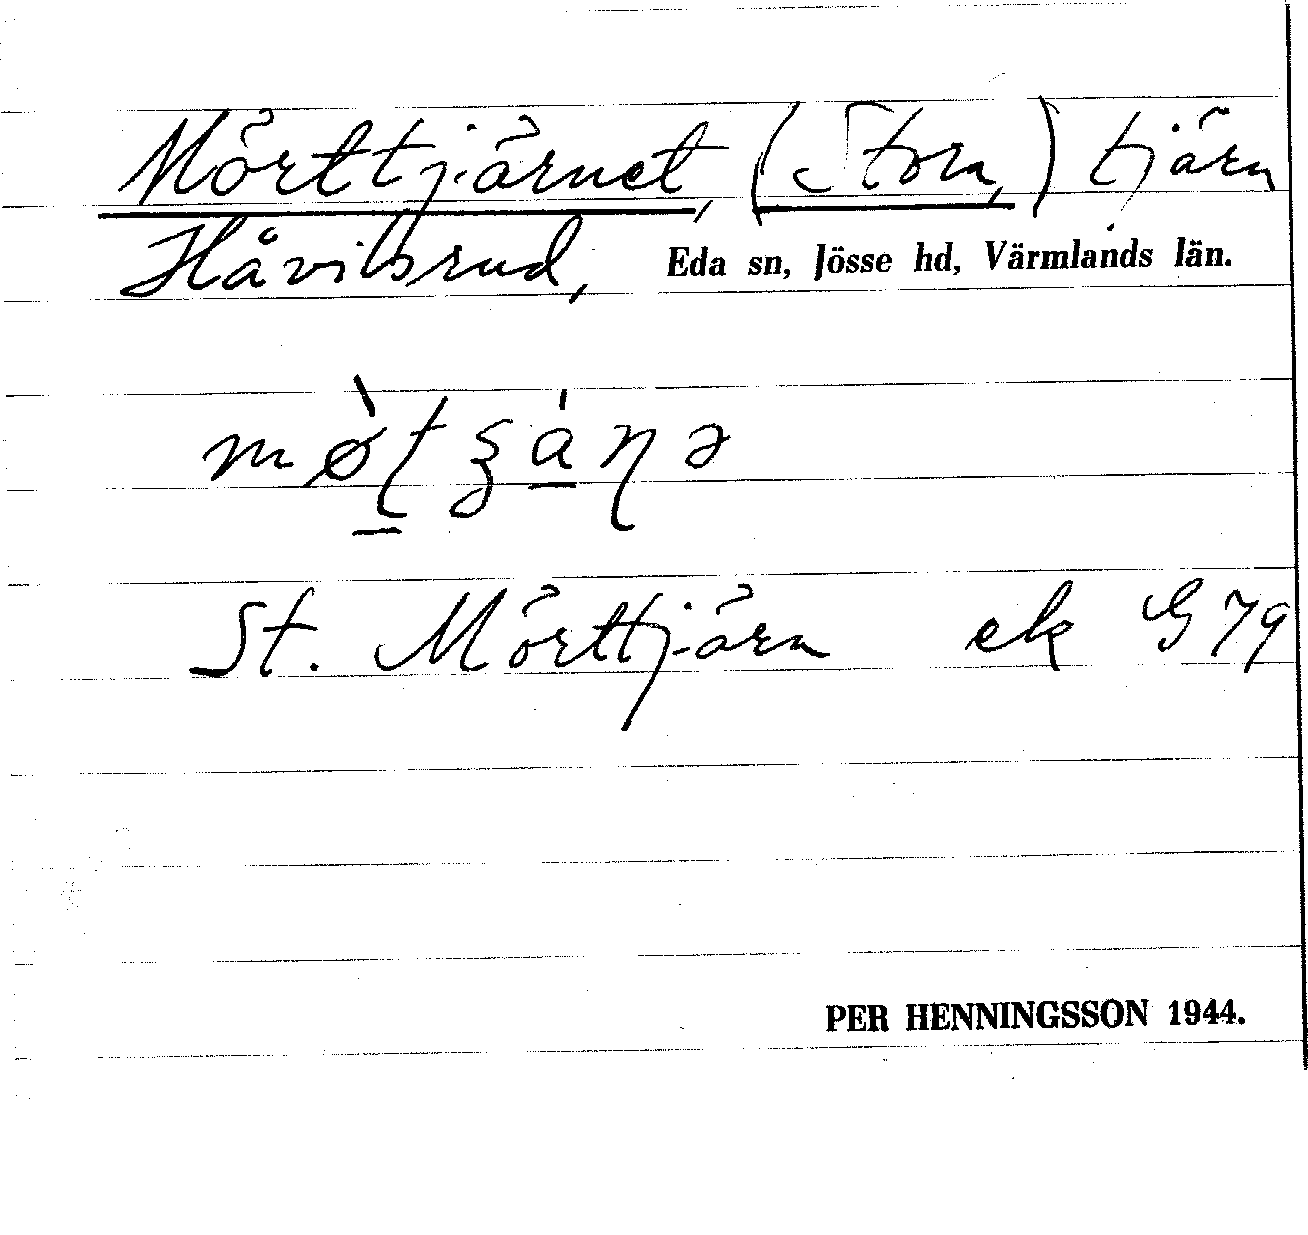 Mörttjärnet, (Stora,) tjärn
Håvilsrud, Eda sn, Jösse hd, Värmlands län.
St. Mörttjärn ek G 79
PER HENNINGSSON 1944.